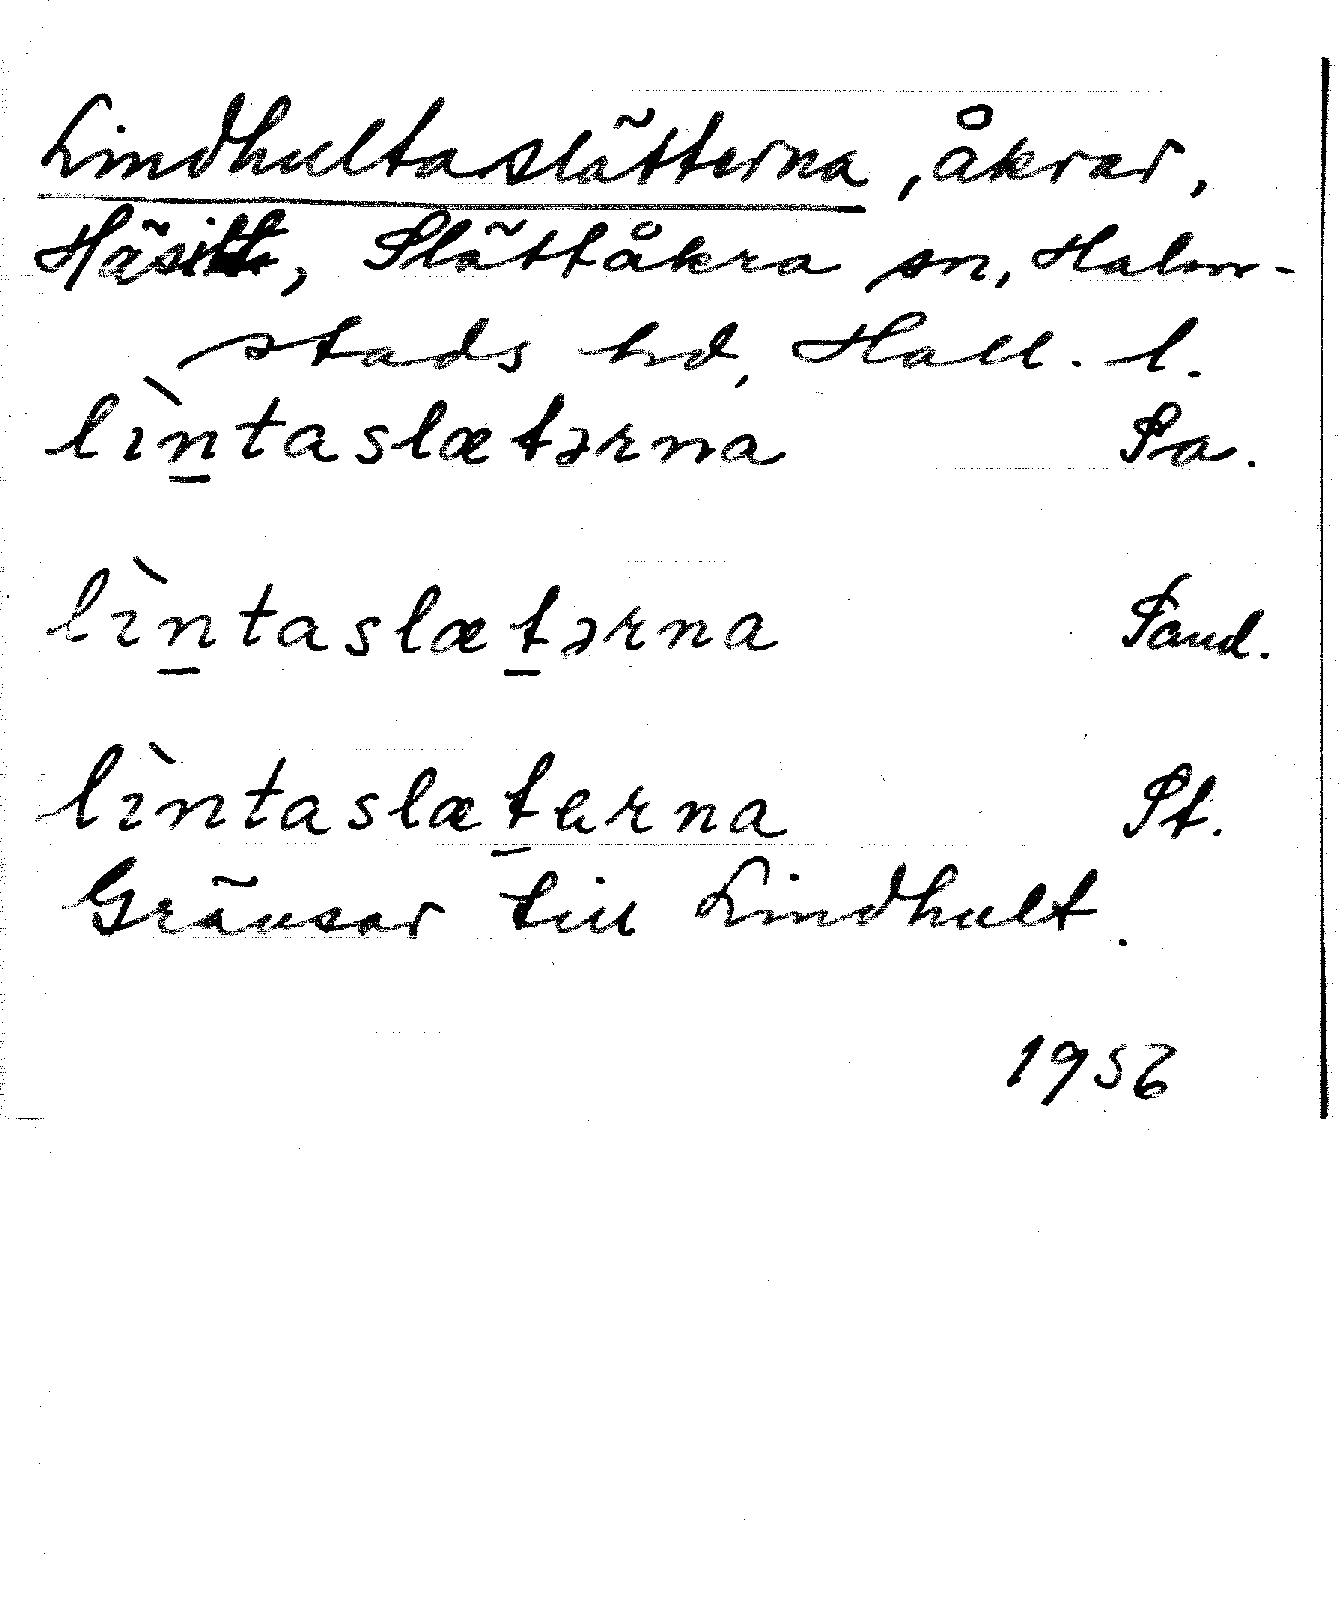 Lindhultaslätterna, åkrar,
Slättåkra sn, Halm-
stads hd, Hall. l.
lìn̲taslætərna Sa.
lìn̲taslæt̲ərna Sand.
lìntaslæt̲erna St.
Gränsar till Lindhult.
1956